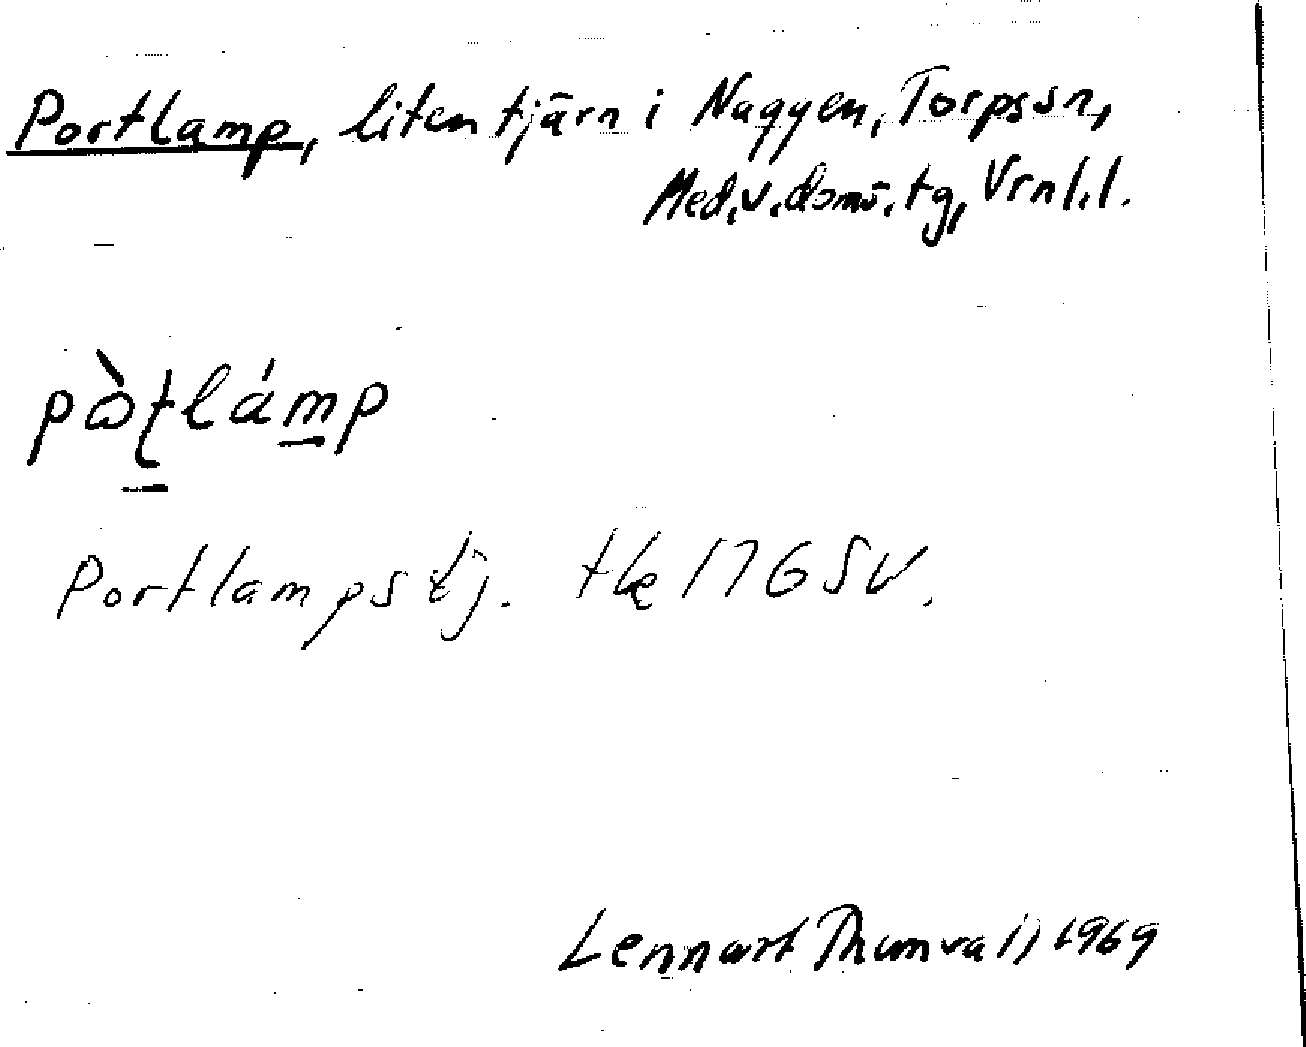 Portlamp, liten tjärn i Naggen, Torps sn,
Med.v.doms.tg, Vrnl.l.
pòʈlámp
Portlampstj. tk 17G SV.
Lennart Thunvall 1969